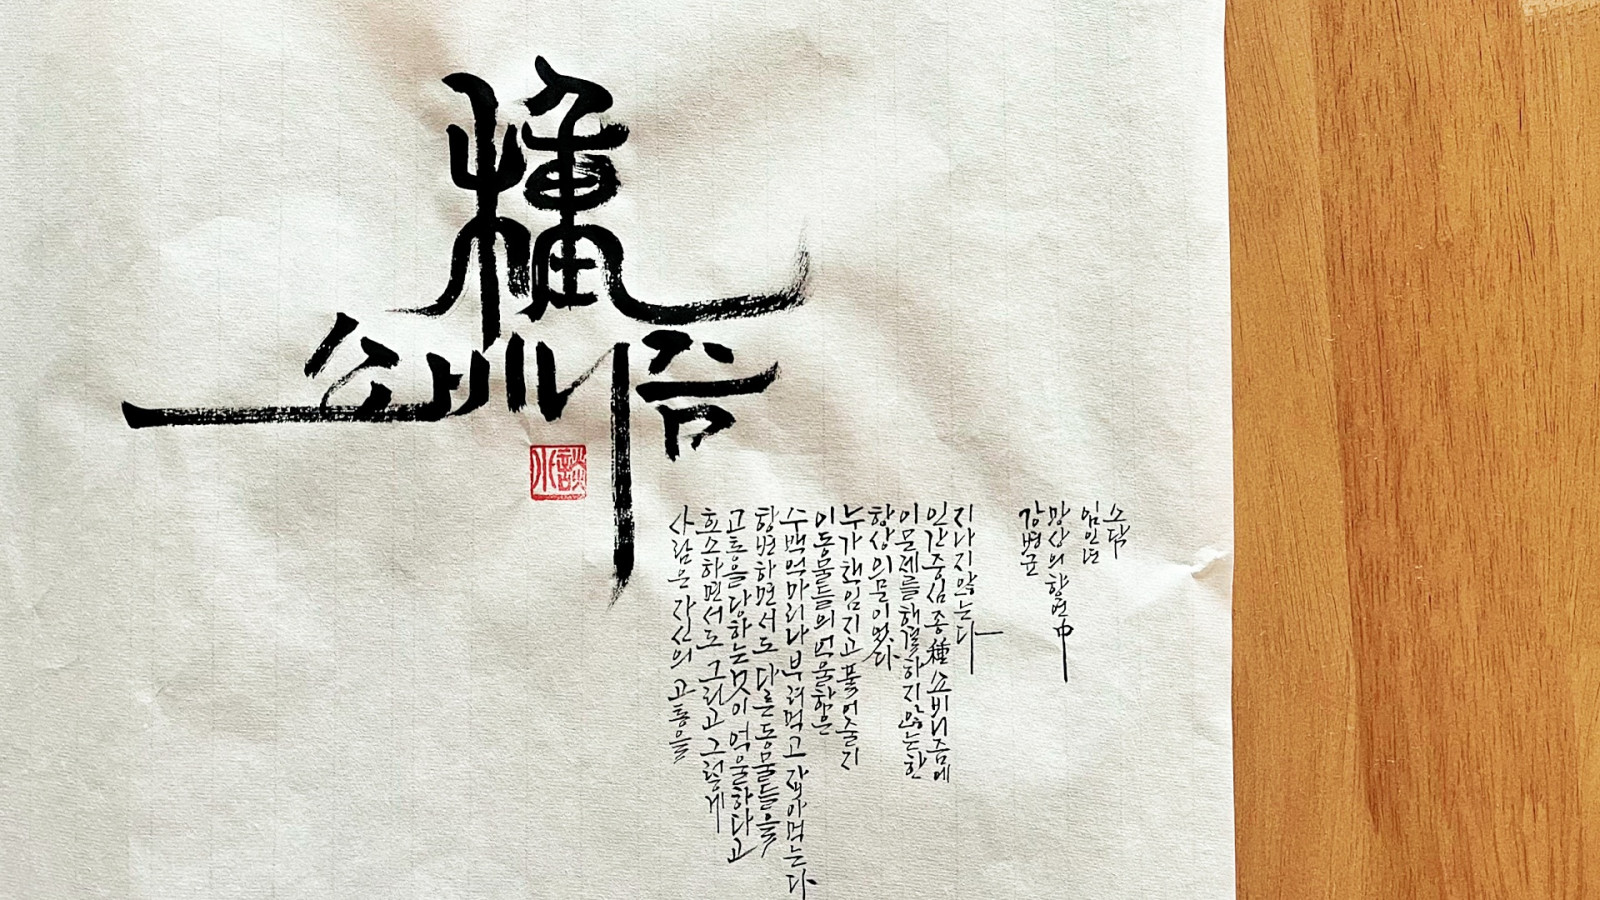 種
쇼비니즘
사람은 자신의 고통을
호소하면서도 그리고 그렇게
고통을 당하는 것이 억울하다고
항변하면서도 다른 동물들을
수백억마리나 부려먹고 잡아먹는다
이 동물들의 억울함은
누가 책임지고 풀어줄지
항상 의문이었다
이 문제를 해결하지 않는 한
인간중심 종種 쇼비니즘에
지나지 않는다
강병균
망상의 향연 中
임인년
소담